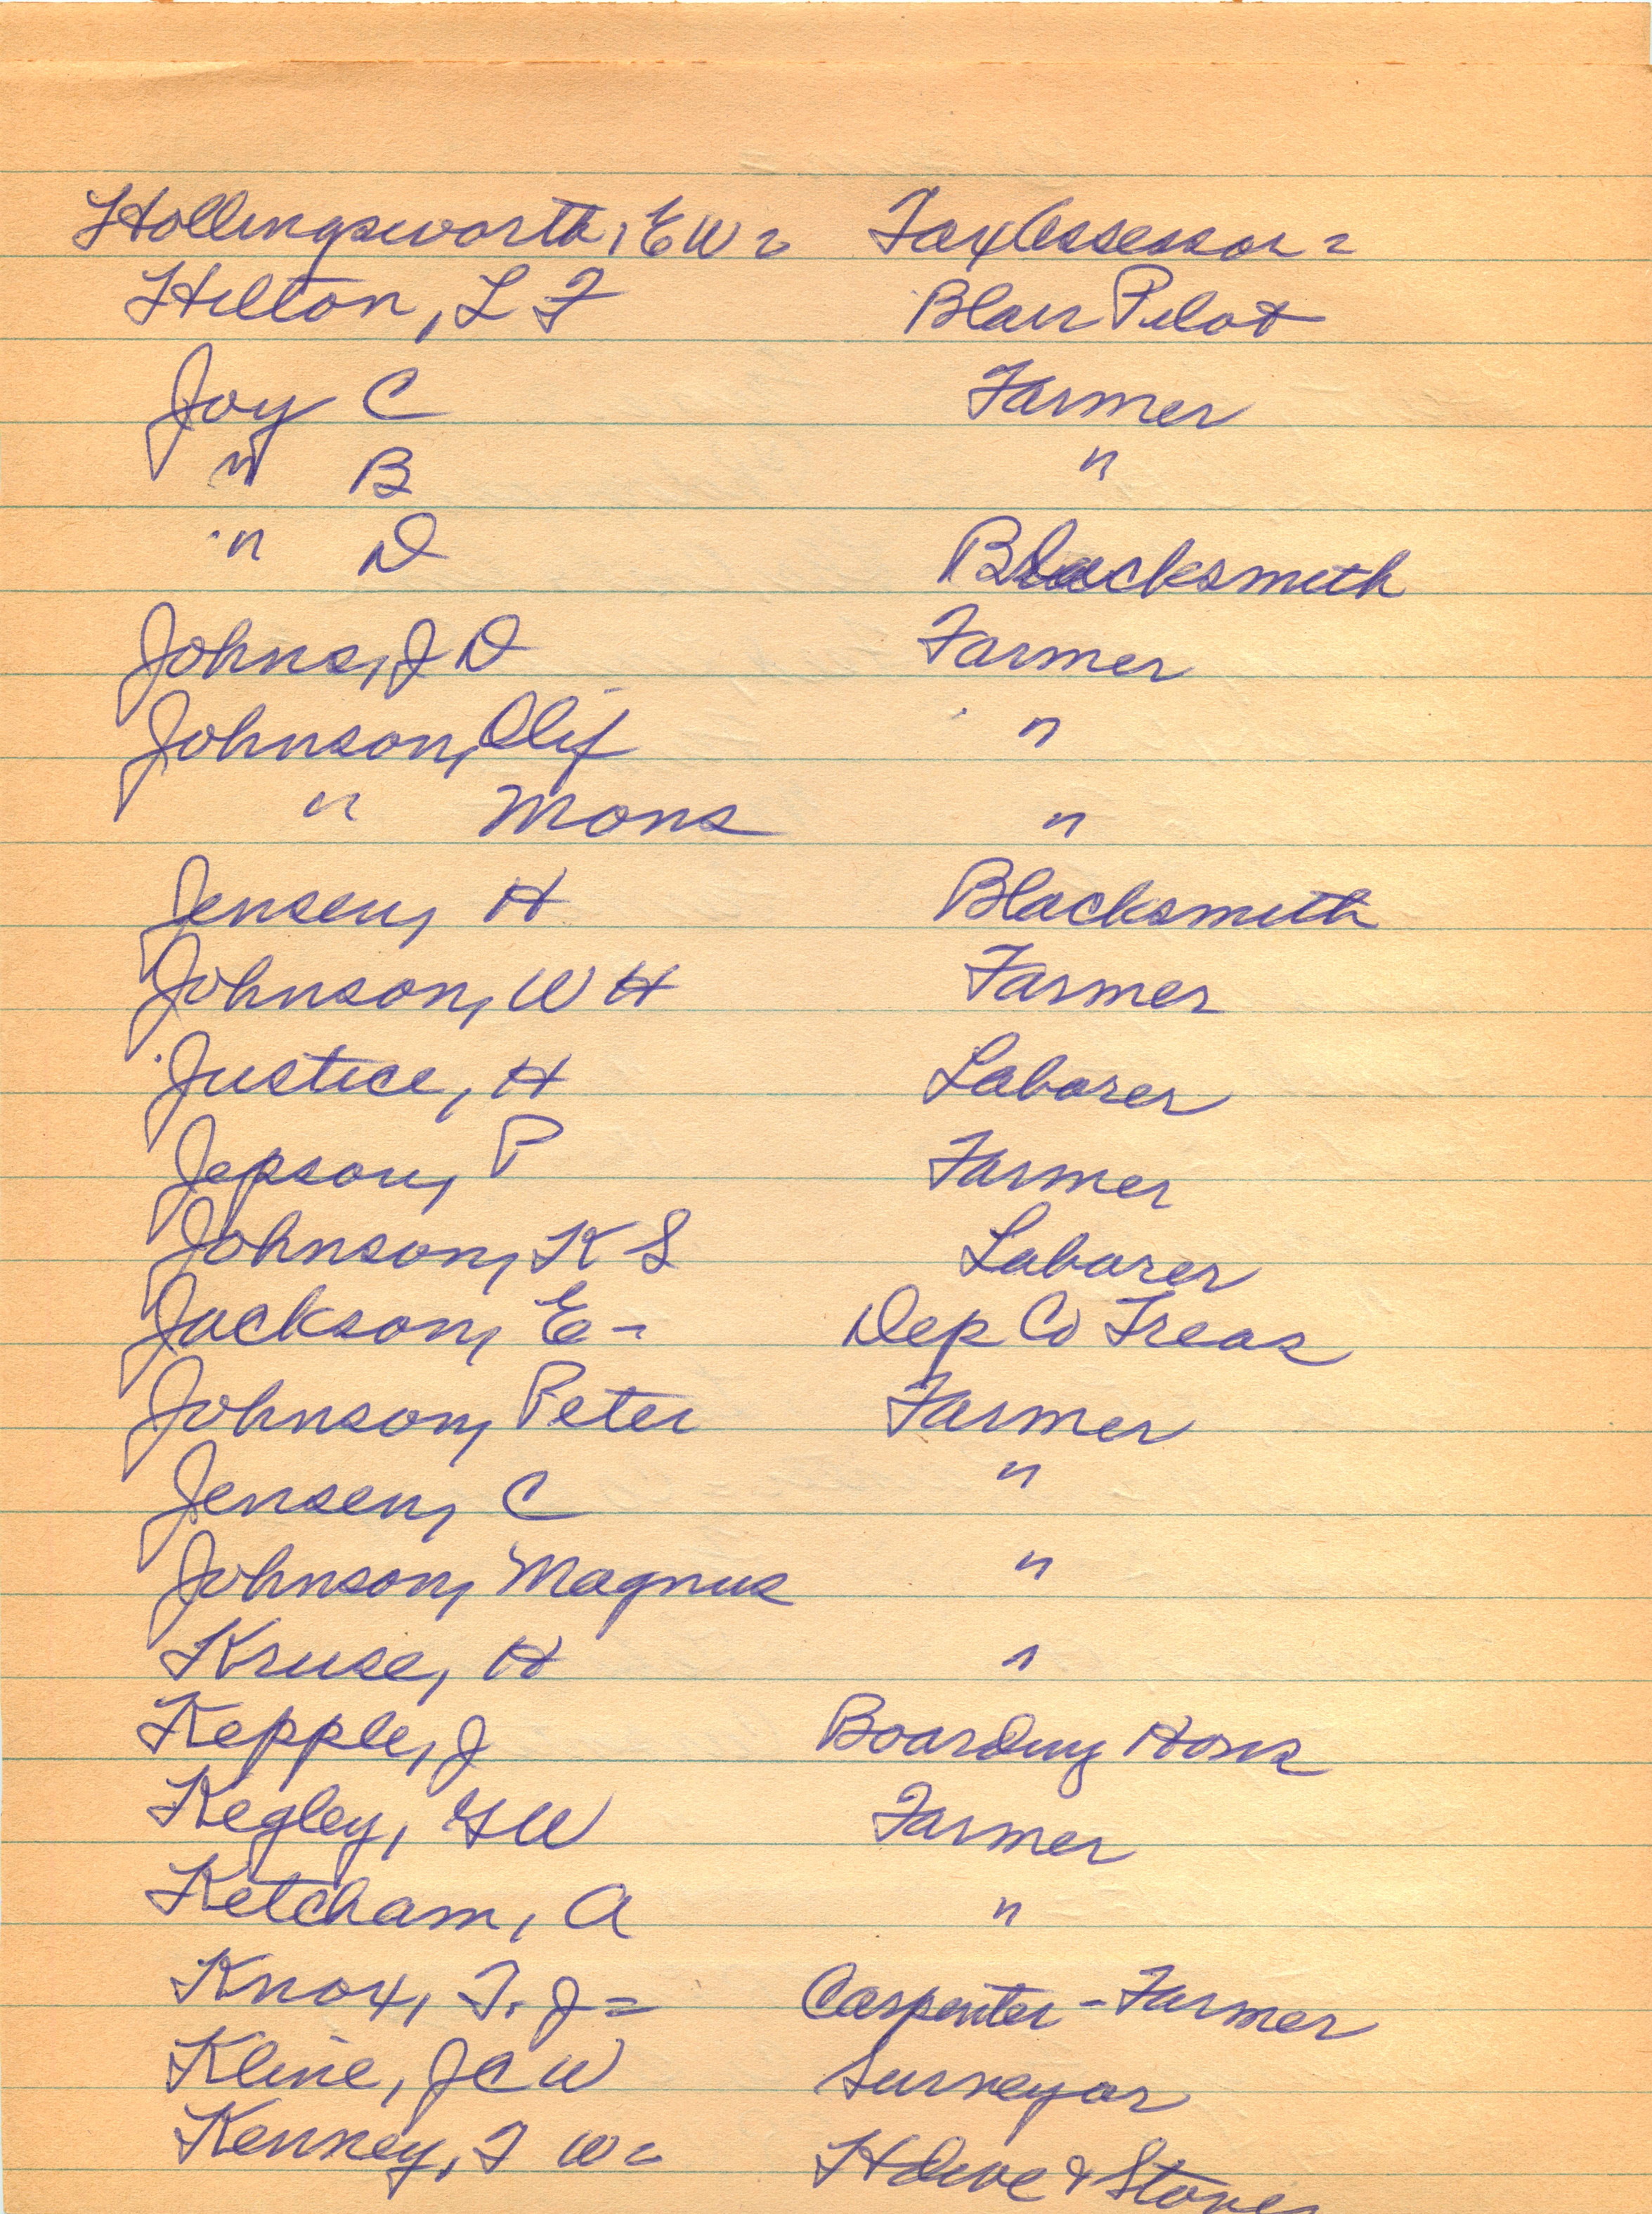 Hollingsworth, E W = Tax Assessor =
Hilton, L F Blair Pilot
Joy C Farmer
" B "
" D Blacksmith
Johns, J D Farmer
Johnson, Olif "
" Mons "
Jensen, H Blacksmith
Johnson, W H Farmer
Justice, H Laborer
Jepson, P Farmer
Johnson, K S Laborer
Jackson, E - Dep Co Treas
Johnson, Peter Farmer
Jensen, C "
Johnson, Magnus "
Kruse, H "
Kepple, J Boarding Hous
Kegley, G W Farmer
Ketcham, A "
Knox, T. J = Carpenter - Farmer
Kline, J C W Surveyor
Kenney, F W = Hdwe & Stoves